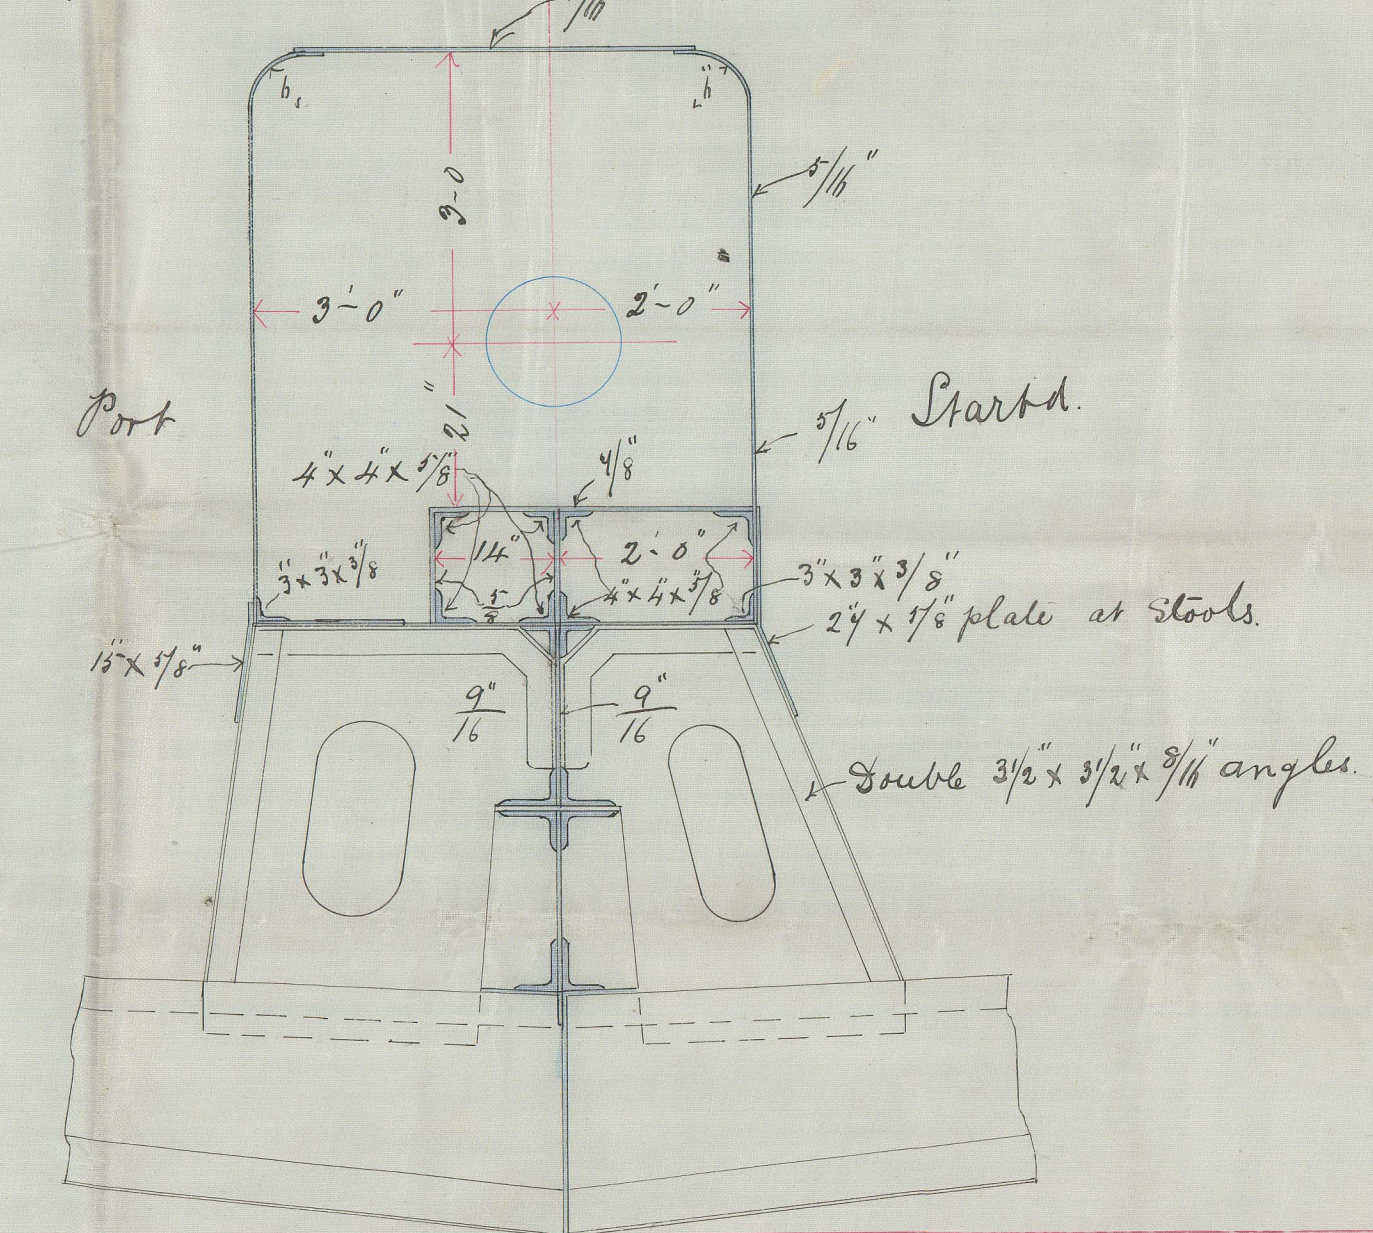 5/16"
3-0
3'-0"
2'-0"
Port
Starbd.
5/16"
21"
4" x 4" x 5/8"
14"
2'-0"
3" x 3" x 3/8
5/8
4" x 4" x 5/8
3" x 3" x 3/8"
plate at Stools.
15" x 5/8"
9"
16
9"
16
Double 3 1/2" x 3 1/2" x 8/16" angles.